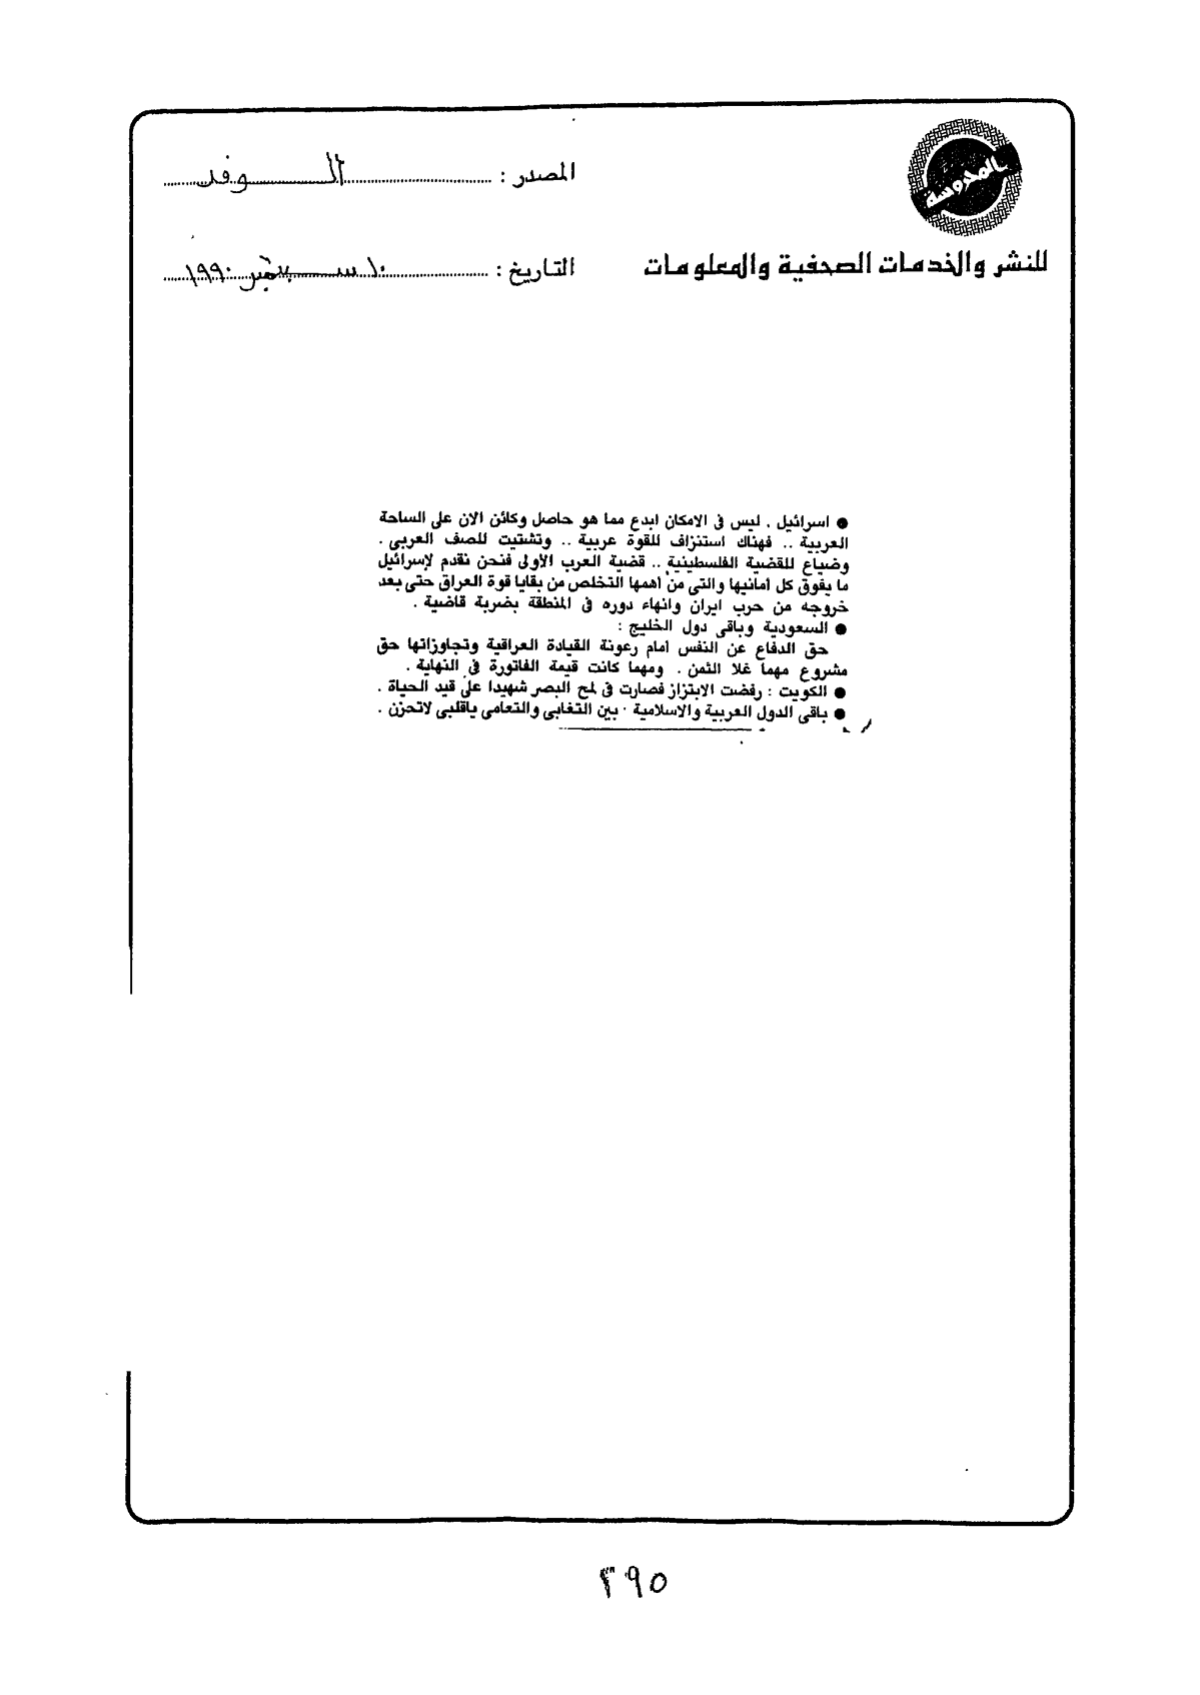 المحروسة
للنشر والخدمات الصحفية والمعلومات
المصدر : الوفد
التاريخ : ١٠ سبتمبر ١٩٩٠
● اسرائيل . ليس فى الامكان ابدع مما هو حاصل وكائن الان على الساحة
العربية .. فهناك استنزاف للقوة عربية .. وتشتيت للصف العربى .
وضياع للقضية الفلسطينية .. قضية العرب الأولى فنحن نقدم لإسرائيل
ما يفوق كل أمانيها والتى من أهمها التخلص من بقايا قوة العراق حتى بعد
خروجه من حرب ايران وانهاء دوره فى المنطقة بضربة قاضية .
● السعودية وباقى دول الخليج :
حق الدفاع عن النفس أمام رعونة القيادة العراقية وتجاوزاتها حق
مشروع مهما غلا الثمن . ومهما كانت قيمة الفاتورة فى النهاية .
● الكويت : رفضت الابتزاز فصارت فى لمح البصر شهيدا على قيد الحياة .
● باقى الدول العربية والاسلامية · بين التغابى والتعامى ياقلبى لاتحزن .
٣٩٥